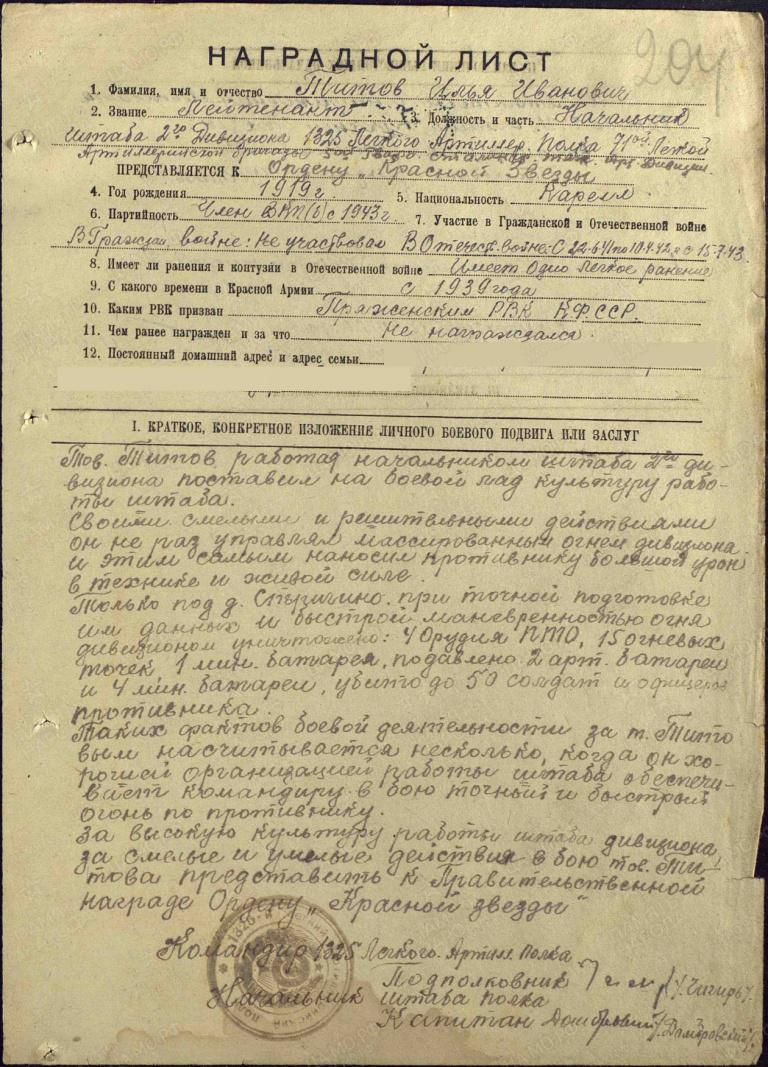 204
НАГРАДНОЙ ЛИСТ
1. Фамилия, имя и отчество Титов Илья Иванович
2. Звание Лейтенант 3. Должность и часть Начальник
штаба 2го Дивизиона 1325 Легкого Артиллер. Полка 71ой Легкой
Артиллерийской бригады
ПРЕДСТАВЛЯЕТСЯ К Ордену „Красной Звезды
4. Год рождения 1919 г 5. Национальность Карелл
6. Партийность Член ВКП(б) с 1943 г. 7. Участие в Гражданской и Отечественной войне
В Граждан. войне: Не участвовал В Отечеств. войне: С 22.6.41 по 10.4.42 и с 15.7.43.
8. Имеет ли ранения и контузии в Отечественной войне Имеет одно легкое ранение
9. С какого времени в Красной Армии с 1939 года
10. Каким РВК призван Пряженским РВК КФССР.
11. Чем ранее награжден и за что Не награждался.
12. Постоянный домашний адрес и адрес семьи
I. КРАТКОЕ, КОНКРЕТНОЕ ИЗЛОЖЕНИЕ ЛИЧНОГО БОЕВОГО ПОДВИГА ИЛИ ЗАСЛУГ
Тов. Титов работая начальником штаба 2го ди-
визиона поставил на боевой лад культуру рабо-
ты штаба.
Своими смелыми и решительными действиями
он не раз управлял массированным огнем дивизиона
и этим самым наносил противнику большой урон
в технике и живой силе.
Только под д. при точной подготовке
им данных и быстрой маневренностью огня
дивизионом уничтожено: 4 Орудия ПТО, 15 огневых
точек 1 мин. батарея, подавлено 2 арт. батареи
и 4 мин. батареи, убито до 50 солдат и офицеров
противника.
Таких фактов боевой деятельности за т. Тито
вым насчитывается несколько, когда он хо-
рошей организацией работы штаба обеспечи-
вает командиру в бою точный и быстрый
огонь по противнику.
За высокую культуру работы штаба дивизиона
за смелые и умелые действия в бою тов. Ти-
това представить к Правительственной
награде Ордену „Красной звезды"
Командир 1325 Легкого. Артилл. Полка
Подполковник /Чигирь/
Начальник штаба полка
Капитан Домбровский /Домбровский/